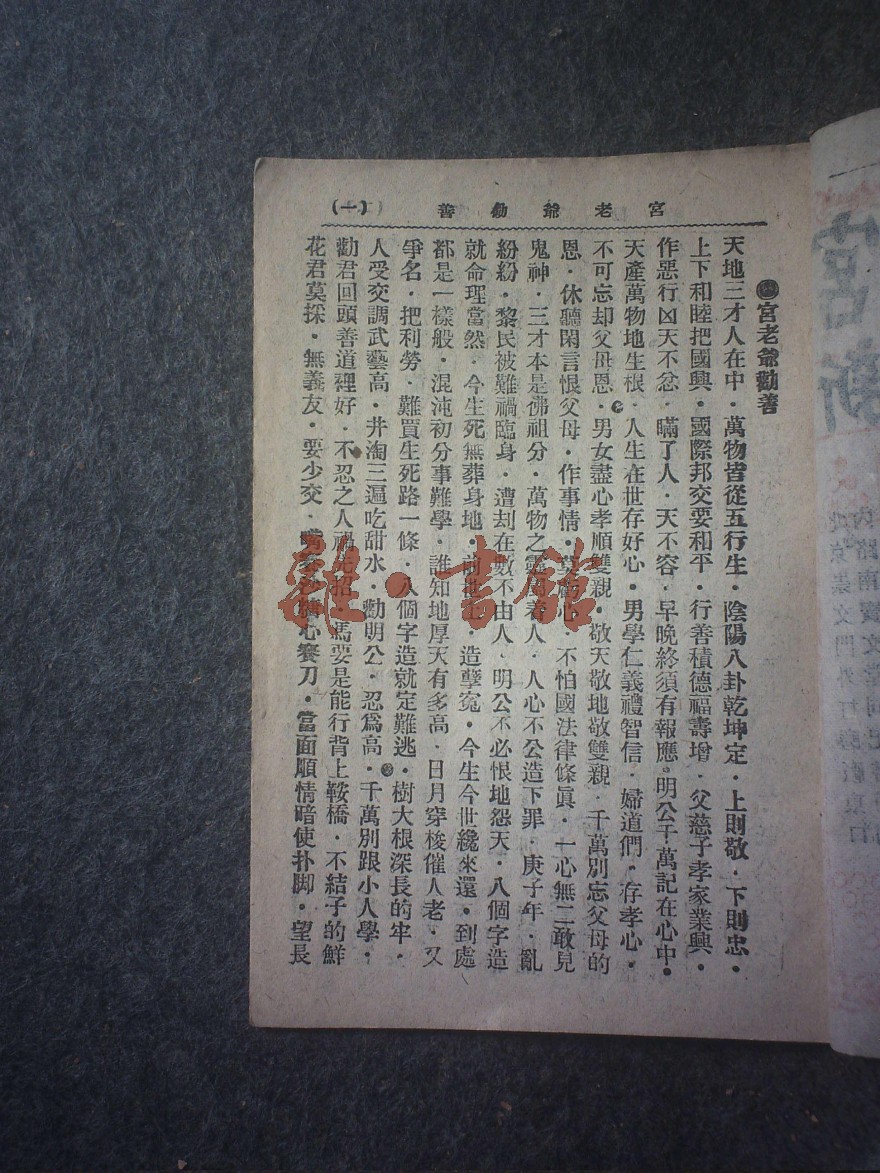 宮老爺勸善 (一)
宮老爺勸善
天地三才人在中·萬物皆從五行生·陰陽八卦乾坤定·上則敬·下則忠·
上下和睦把國興·國際邦交要和平·行善積德福壽增·父慈子孝家業興·
作惡行凶天不忿·瞞了人·天不容·早晚終須有報應。明公千萬記在心中·
天產萬物地生根·人生在世存好心·男學仁義禮智信·婦道們·存孝心·
不可忘却父母恩·男女盡心孝順雙親·敬天敬地敬雙親·千萬別忘父母的
恩·休聽閑言恨父母·作事情·莫虧心·不怕國法律條眞·一心無二敢見
鬼神·三才本是佛祖分·萬物之靈屬着人·人心不公造下罪·庚子年·亂
紛紛·黎民被難禍臨身·遭刦在數不由人·明公不必恨地怨天·八個字造
就命理當然·今生死無葬身地·前世上·造孽冤·今生今世纔來還·到處
都是一樣般·混沌初分事難學·誰知地厚天有多高·日月穿梭催人老·又
爭名·把利勞·難買生死路一條·八個字造就定難逃·樹大根深長的牢·
人受交調武藝高·井淘三遍吃甜水·勸明公·忍爲高·千萬別跟小人學·
勸君回頭善道裡好·不忍之人禍先招·馬要是能行背上鞍橋·不結子的鮮
花君莫採·無義友·要少交·嘴心賽刀·當面順情暗使扑脚·望長
雜·書館